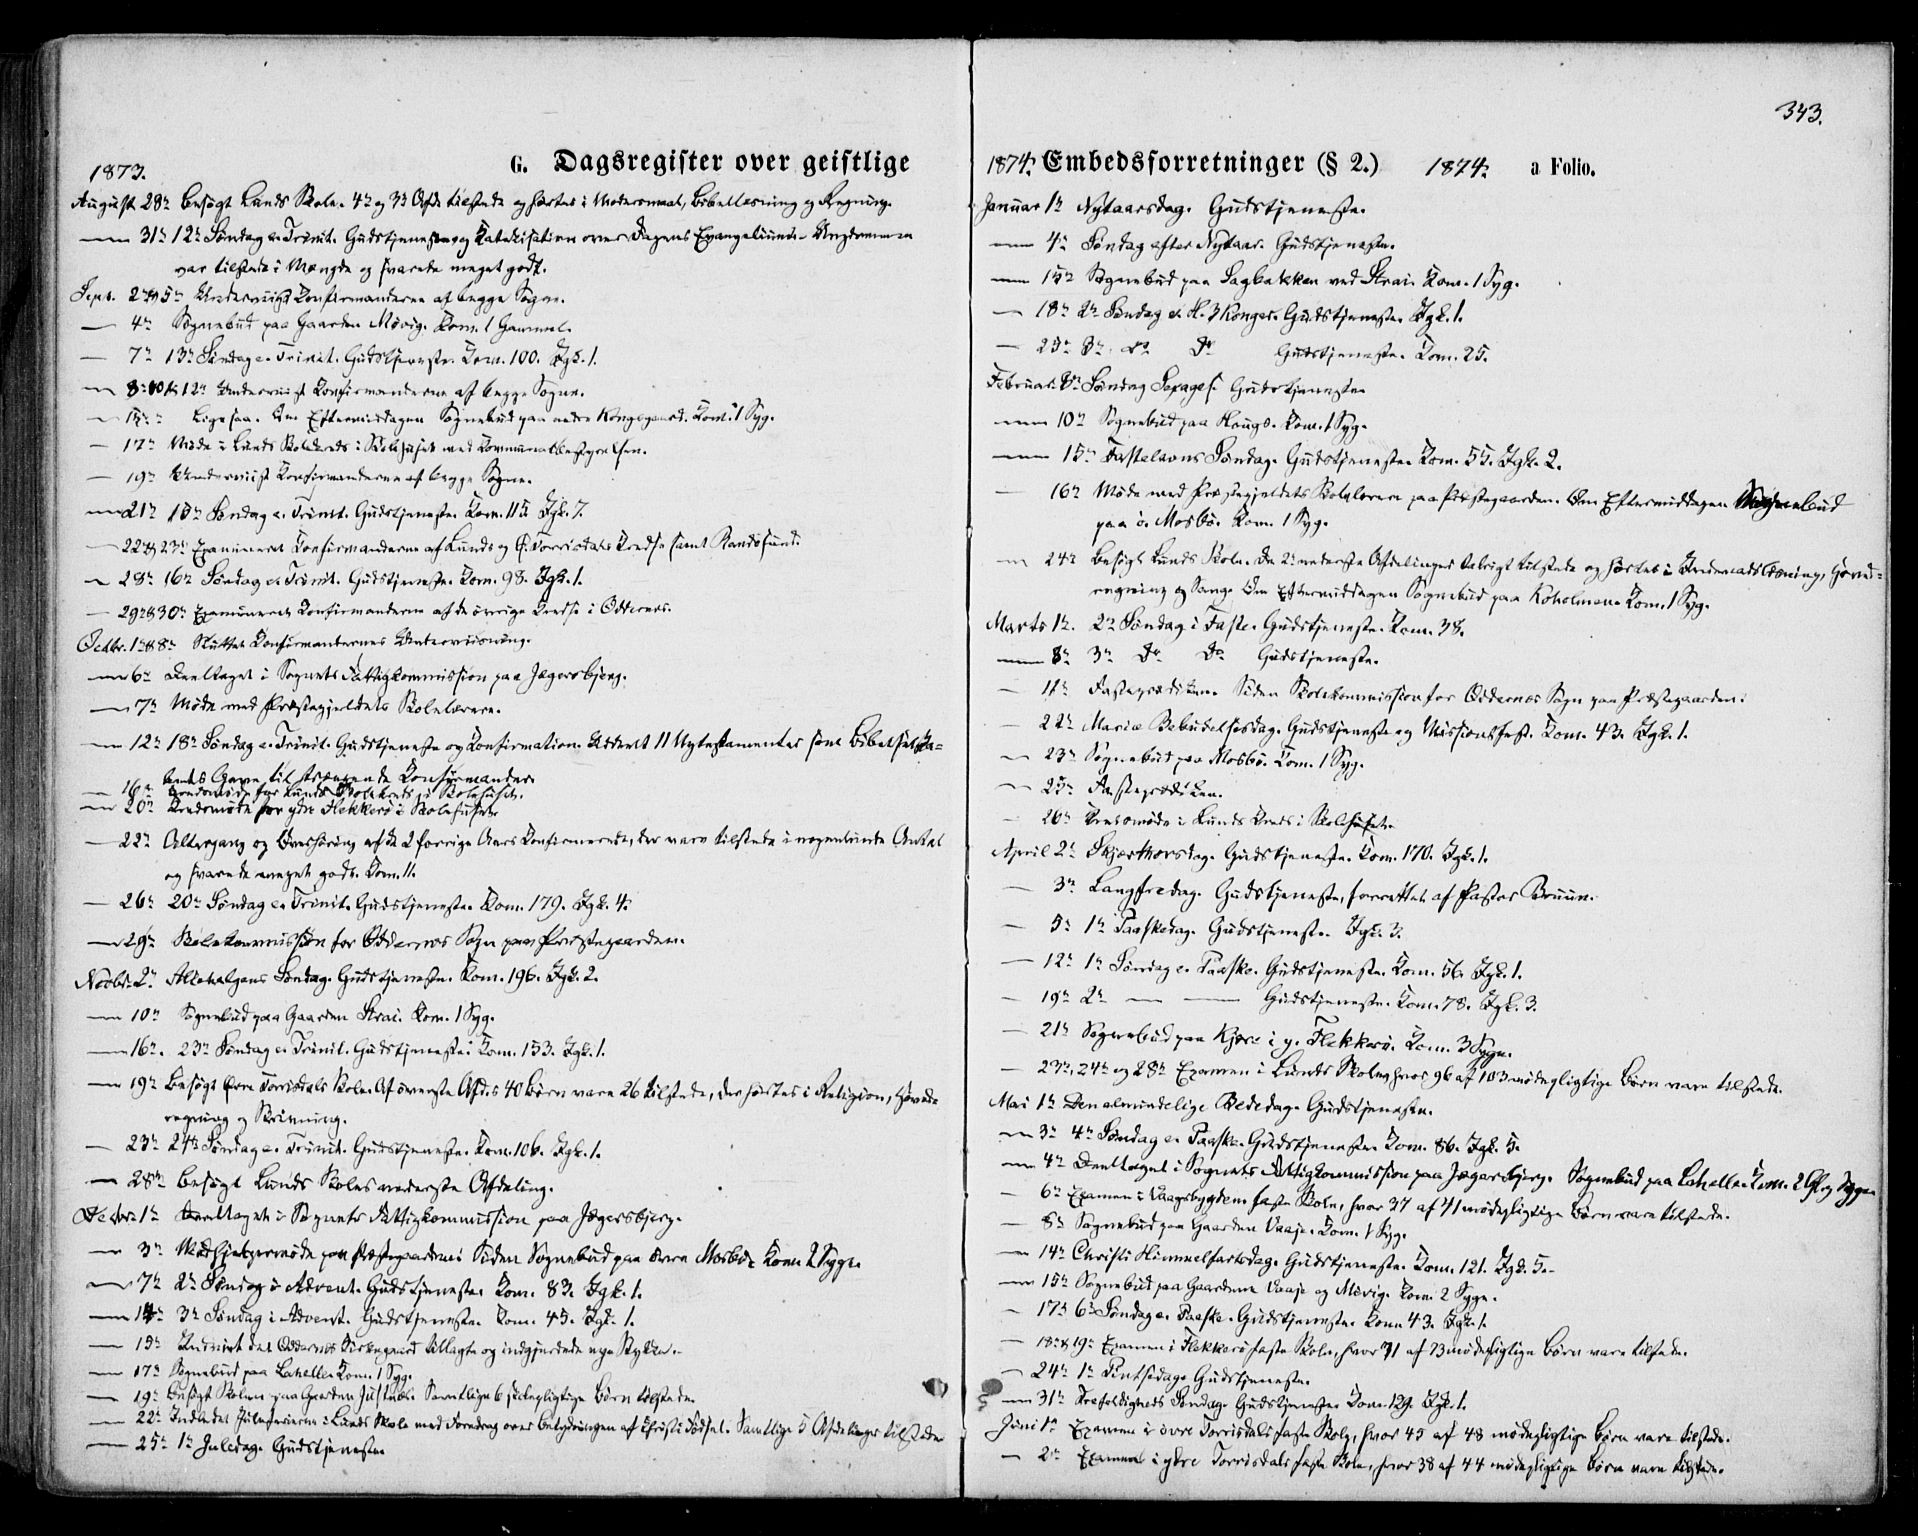 343.
1873.
G. Dagsregister over geistlige
August 28de besøgt Lunds Skole. 4de og 3de Afd. tilstede og hørtes i Modersmaal, Bibellæsning og Regning.
— 31te 12te Søndag e. Trinit. Gudstjeneste og Katekisation over Dagens Evangelium. Ungdommen
var tilstede i Mængde og svarede meget godt.
Sept. 2den & 5te Underviist Confirmanderne af begge Sogne.
— 4de Sognebud paa Gaarden Møvig. Kom. 1 Gammel.
— 7de 13de Søndag e. Trinit. Gudstjeneste. Kom. 100. Jgk. 1.
— 8de 10de & 12te Underviist Konfirmanderne af begge Sogne.
— 15de Ligesaa. Om Eftermiddagen Sognebud paa nedre Kongsgaard. Kom. 1 Syg.
— 17de Møde i Lunds Skolekreds i Skolehuset med Kommunalbestyrelsen.
— 19de Underviist Konfirmanderne af begge Sogne.
— 21de 15de Søndag e. Trinit. Gudstjeneste. Kom. 115 Jgk. 7.
— 22de & 23de Examineret Confirmanderne af Lunds og Ø. Torrisdals Kredse samt Randøsund.
— 28de 16de Søndag e. Trinit. Gudstjeneste. Kom. 98. Jgk. 1.
— 29de & 30te Examineret Konfirmanderne af de øvrige Kredse i Oddernes.
Octbr. 1ste & 8de Sluttet Konfirmandernes Underviisning.
— 6te Deeltaget i Sognets Fattigkommission paa Jægersbjerg.
— 7de Møde med Præstegjeldets Skolelærere.
— 12te 18de Søndag e. Trinit. Gudstjeneste og Konfirmation. Uddeelt 11 Nytestamenter som Bibelselska-
bets Gave til trængende Konfirmander.
— 16de Kredsmøde for Lunds Skolekreds i Skolehuset.
— 20de Kredsmøde for ydre Flekkerø i Skolehuset.
— 22de Altergang og Overhøring af de 2 forrige Aars Konfirmerede, der vare tilstede i nogenlunde Antal
og svarede meget godt. Kom. 11.
— 26de 20de Søndag e. Trinit. Gudstjeneste. Kom. 179. Jgk. 4.
— 29de Skolekommission for Oddernes Sogn paa Præstegaarden.
Novbr. 2den Allehelgens Søndag. Gudstjeneste. Kom. 196. Jgk. 2.
— 10de Sognebud paa Gaarden Strai. Kom. 1 Syg.
— 16de. 23de Søndag e. Trinit. Gudstjeneste. Kom. 153. Jgk. 1.
— 19de besøgt Øvre Torrisdals Skole. Af øverste Afd.s 40 Børn vare 26 tilstede, der hørtes i Religion, Hoved-
regning og Skrivning.
— 23de 24de Søndag e. Trinit. Gudstjeneste. Kom. 106. Jgk. 1.
— 28de besøgt Lunds Skoles nederste Afdeling.
Decbr. 1ste Deeltaget i Sognets Fattigkommission paa Jægersbjerg.
— 3de Medhjelpermøde paa Præstegaarden. Siden Sognebud paa Øvre Mosbø. Kom. 2 Syge.
— 7de 2den Søndag i Advent. Gudstjeneste. Kom. 83. Jgk. 1.
— 14de 3de Søndag i Advent. Gudstjeneste. Kom. 45. Jgk. 1.
— 15de Indviet det Oddernes Kirkegaard tillagte og indgjerdede nye Stykke.
— 17de Sognebud paa Lahelle. Kom. 1 Syg.
— 19de besøgt Skolen paa Gaarden Justnæs. Samtlige 6 skolepligtige Børn tilstede.
— 22de Indledet Juleferierne i Lunds Skole med Foredrag over Betydningen af Christi Fødsel. Samtlige 5 Afdelinger tilstede.
— 25de 1ste Juledag. Gudstjeneste.
1874. Embedsforretninger (§ 2.) 1874. a Folio.
Januar 1ste Nytaarsdag. Gudstjeneste.
— 4de Søndag efter Nytaar. Gudstjeneste.
— 15de Sognebud paa Sagbakken ved Strai. Kom. 1 Syg.
— 18de 2den Søndag e. H. 3 Konger. Gudstjeneste. Jgk. 1.
— 25de 3de. do Do Gudstjeneste. Kom. 25.
Februar. 8de Søndag Sexages. Gudstjeneste
— 10de Sognebud paa Haugs. Kom. 1 Syg.
— 15de Fastelavns Søndag. Gudstjeneste. Kom. 55. Jgk. 2.
— 16de Møde med Præstegjeldets Skolelærere paa Præstegaarden. Om Eftermiddagen Sognebud
paa ø. Mosbø. Kom. 1 Syg.
— 24de besøgt Lunds Skole. De 2 nederste Afdelinger talrigt tilstede og hørtes i Indenadslæsning, Hoved-
regning og Sang. Om Eftermiddagen Sognebud paa Koholmen. Kom. 1 Syg.
Marts 1ste. 2den Søndag i Faste. Gudstjeneste. Kom. 38.
— 8de 3de Do Do Gudstjeneste.
— 11te Fasteprædiken. Siden Skolekommission for Oddernes Sogn paa Præstegaarden.
— 22de Mariæ Bebudelsesdag. Gudstjeneste og Missionsfest. Kom. 43. Jgk. 1.
— 23de Sognebud paa Mosbø. Kom. 1 Syg.
— 25de Fasteprædiken.
— 26de Kredsmøde i Lunds Kreds i Skolehuset.
April 2den Skjærthorsdag. Gudstjeneste. Kom. 170. Jgk. 1.
— 3de Langfredag. Gudstjeneste, forrettet af Pastor Bruun.
— 5te 1ste Paaskedag. Gudstjeneste. Jgk. 3.
— 12te 1ste Søndag e. Paaske. Gudstjeneste. Kom. 56. Jgk. 1.
— 19de 2den — — Gudstjeneste. Kom. 78. Jgk. 3.
— 21de Sognebud paa Kjære i y. Flekkerø. Kom. 3 Syge.
— 23de, 24de og 28de Examen i Lunds Skole, hvor 96 af 103 mødepligtige Børn vare tilstede.
Mai 1ste Den almindelige Bededag. Gudstjeneste.
— 3de 4de Søndag e. Paaske. Gudstjeneste. Kom. 86. Jgk. 5.
— 4de Deeltaget i Sognets Fattigkommission paa Jægersbjerg. Sognebud paa Lahelle. Kom. 2 Gl. og Syge.
— 6te Examen i Vaagsbygdens faste Skole, hvor 37 af 41 mødepligtige Børn vare tilstede.
— 8de Sognebud paa Gaarden Vaaje. Kom. 1 Syg.
— 14de Christi Himmelfartsdag. Gudstjeneste. Kom. 121. Jgk. 5.
— 15de Sognebud paa Gaardene Vaaje og Møvig. Kom. 2 Syge.
— 17de 6te Søndag e. Paaske. Gudstjeneste. Kom. 43. Jgk. 1.
— 18de & 19de Examen i Flekkerø faste Skole, hvor 71 af 73 mødepligtige Børn vare tilstede.
— 24de 1ste Pintsedag. Gudstjeneste.
— 31te Trefoldigheds Søndag. Gudstjeneste. Kom. 129. Jgk. 1.
Juni 1ste Examen i øvre Torrisdals faste Skole, hvor 45 af 48 mødepligtige Børn vare tilstede.
— 2den Examen i ytre Torrisdals faste Skole, hvor 38 af 44 mødepligtige Børn vare tilstede.